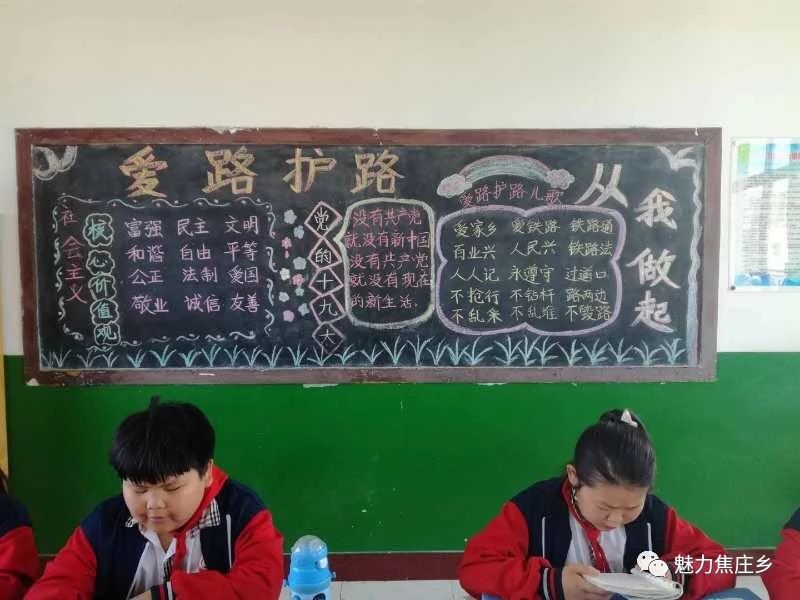 爱路护路
从我做起
社会主义
核心价值观
富强 民主 文明
和谐 自由 平等
公正 法制 爱国
敬业 诚信 友善
党的十九大
没有共产党
就没有新中国
没有共产党
就没有现在
的新生活.
爱路护路儿歌
爱家乡 爱铁路 铁路通
百业兴 人民兴 铁路法
人人记 永遵守 过道口
不抢行 不钻杆 路两边
不乱来 不乱堆 不毁路
魅力焦庄乡